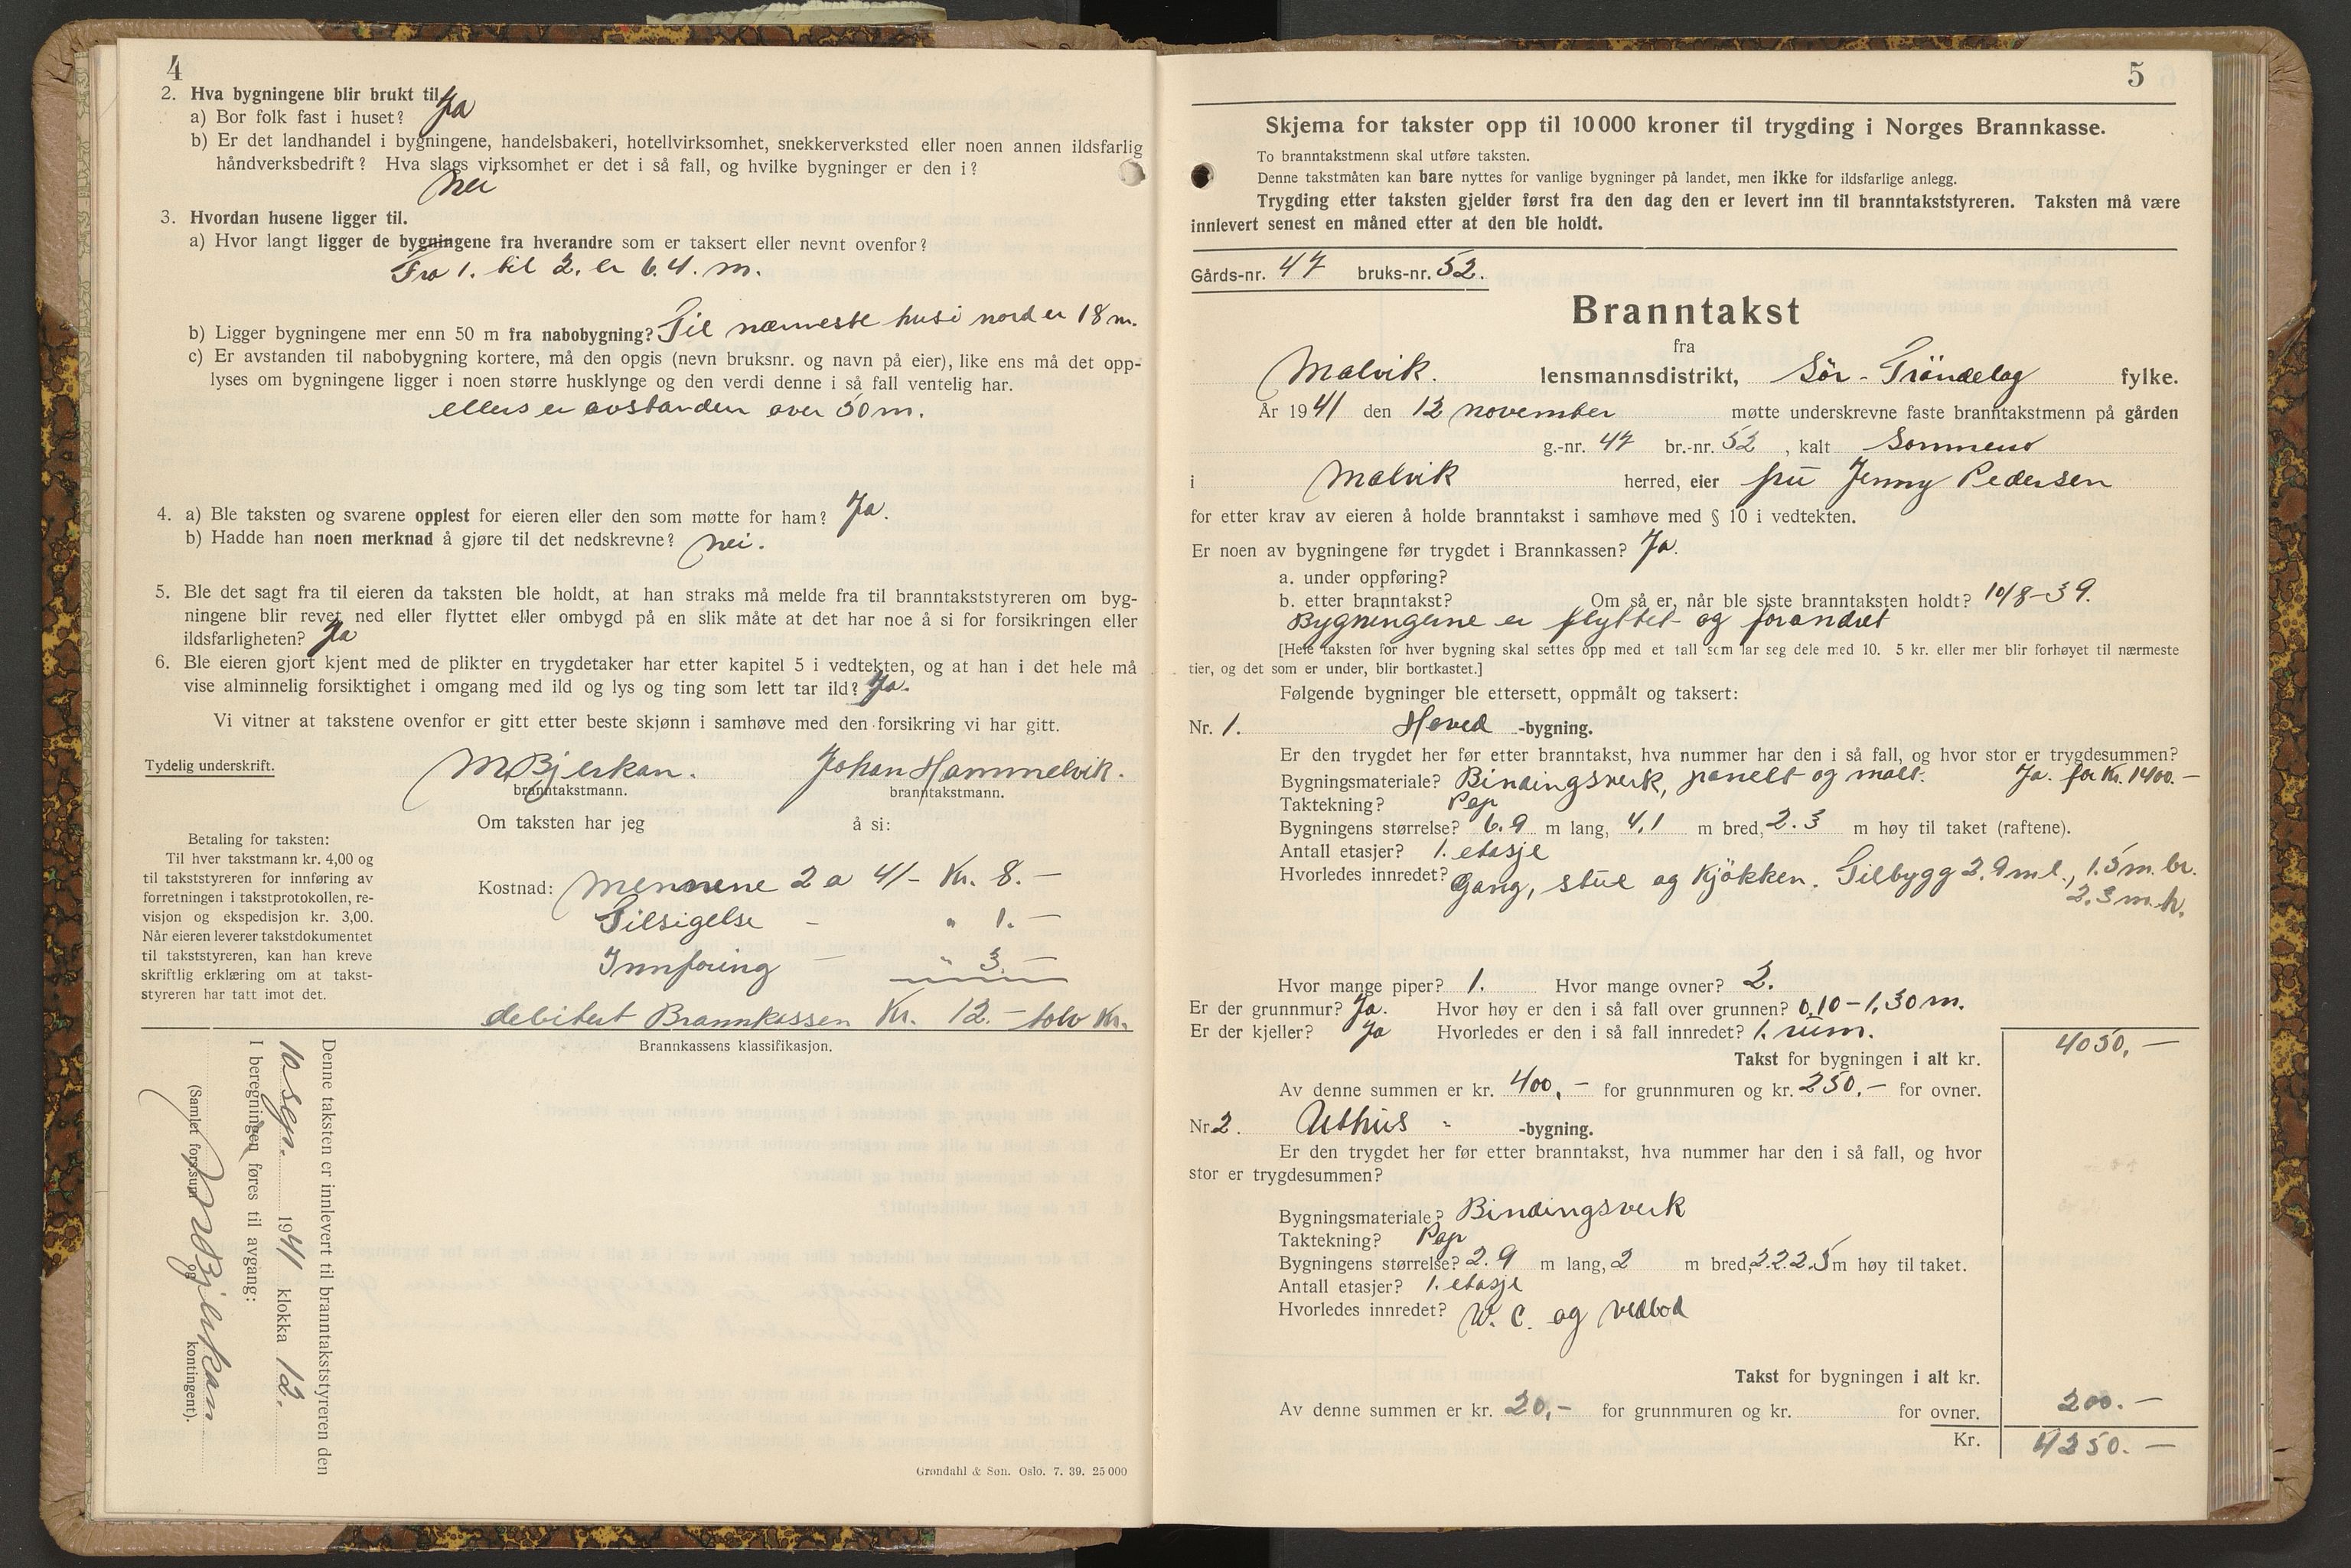 4
2. Hva bygningene blir brukt til.
a) Bor folk fast i huset? Ja
b) Er det landhandel i bygningene, handelsbakeri, hotellvirksomhet, snekkerverksted eller noen annen ildsfarlig
håndverksbedrift? Hva slags virksomhet er det i så fall, og hvilke bygninger er den i?
Nei
3. Hvordan husene ligger til.
a) Hvor langt ligger de bygningene fra hverandre som er taksert eller nevnt ovenfor?
Fra 1. til 2. er 6.4. m.
b) Ligger bygningene mer enn 50 m fra nabobygning? Til nærmeste hus i nord er 18 m.
c) Er avstanden til nabobygning kortere, må den opgis (nevn bruksnr. og navn på eier), like ens må det opp-
lyses om bygningene ligger i noen større husklynge og den verdi denne i så fall ventelig har.
ellers er avstanden over 50 m.
4. a) Ble taksten og svarene opplest for eieren eller den som møtte for ham? Ja.
b) Hadde han noen merknad å gjøre til det nedskrevne? nei.
5. Ble det sagt fra til eieren da taksten ble holdt, at han straks må melde fra til branntakststyreren om byg-
ningene blir revet ned eller flyttet eller ombygd på en slik måte at det har noe å si for forsikringen eller
ildsfarligheten? Ja
6. Ble eieren gjort kjent med de plikter en trygdetaker har etter kapitel 5 i vedtekten, og at han i det hele må
vise alminnelig forsiktighet i omgang med ild og lys og ting som lett tar ild? Ja.
Vi vitner at takstene ovenfor er gitt etter beste skjønn i samhøve med den forsikring vi har gitt.
Tydelig underskrift. M Bjerkan. Johan Hammelvik.
branntakstmann. branntakstmann.
Om taksten har jeg å si:
Betaling for taksten:
Til hver takstmann kr. 4,00 og
til takststyreren for innføring av
forretningen i takstprotokollen, re-
visjon og ekspedisjon kr. 3,00.
Når eieren leverer takstdokumentet
til takststyreren, kan han kreve
skriftlig erklæring om at takst-
styreren har tatt imot det.
Kostnad: Mennene 2 a 4/- Kr. 8. —
Tilsigelse - " 1. —
Innföring — " 3. —
debitert Brannkassen Kr. 12. — tolv Kr.
Brannkassens klassifikasjon.
Denne taksten er innlevert til branntakststyreren den
1941 klokka 12.
I beregningen føres til avgang:
(Samlet fors.sum og kontingent).
Bjerkan
Grøndahl & Søn. Oslo. 7. 39. 25 000
5
Skjema for takster opp til 10 000 kroner til trygding i Norges Brannkasse.
To branntakstmenn skal utføre taksten.
Denne takstmåten kan bare nyttes for vanlige bygninger på landet, men ikke for ildsfarlige anlegg.
Trygding etter taksten gjelder først fra den dag den er levert inn til branntakststyreren. Taksten må være
innlevert senest en måned etter at den ble holdt.
Gårds-nr. 47 bruks-nr. 52.
Branntakst
fra
Malvik. lensmannsdistrikt, Sör-Tröndelag fylke.
År 1941 den 12 november møtte underskrevne faste branntakstmenn på gården
g.-nr. 47 br.-nr. 52, kalt
i Malvik herred, eier fru Jenny Pedersen
for etter krav av eieren å holde branntakst i samhøve med § 10 i vedtekten.
Er noen av bygningene før trygdet i Brannkassen? Ja.
a. under oppføring?
b. etter branntakst? Om så er, når ble siste branntaksten holdt? 10/8-39.
Bygningene er flyttet og forandret
[Hele taksten for hver bygning skal settes opp med et tall som lar seg dele med 10. 5 kr. eller mer blir forhøyet til nærmeste
tier, og det som er under, blir bortkastet.]
Følgende bygninger ble ettersett, oppmålt og taksert:
Nr. 1. Hoved -bygning.
Er den trygdet her før etter branntakst, hva nummer har den i så fall, og hvor stor er trygdesummen?
Bygningsmateriale? Bindingsverk, panelt og malt. Ja. for Kr. 1400.—
Taktekning? Pap
Bygningens størrelse? 6.9 m lang, 4,1 m bred, 2.3 m høy til taket (raftene).
Antall etasjer? 1. etasje
Hvorledes innredet? Gang, stue og Kjökken. Tilbygg 2.9 m l., 1.5 m. br.
2.3 m. h.
Hvor mange piper? 1. Hvor mange ovner? 2.
Er der grunnmur? Ja. Hvor høy er den i så fall over grunnen? 0,10-1,30 m.
Er der kjeller? Ja Hvorledes er den i så fall innredet? 1. rum.
Takst for bygningen i alt kr. 4050,—
Av denne summen er kr. 400,— for grunnmuren og kr. 250,— for ovner.
Nr. 2. Uthus - -bygning.
Er den trygdet her før etter branntakst, hva nummer har den i så fall, og hvor
stor er trygdesummen?
Bygningsmateriale? Bindingsverk
Taktekning? Pap
Bygningens størrelse? 2.9 m lang, 2 m bred, 2.2.2.5 m høy til taket.
Antall etasjer? 1. etasje
Hvorledes innredet? W. C. og vedbod
Takst for bygningen i alt kr. 200.—
Av denne summen er kr. 20,— for grunnmuren og kr. for ovner.
Kr. 4250.—